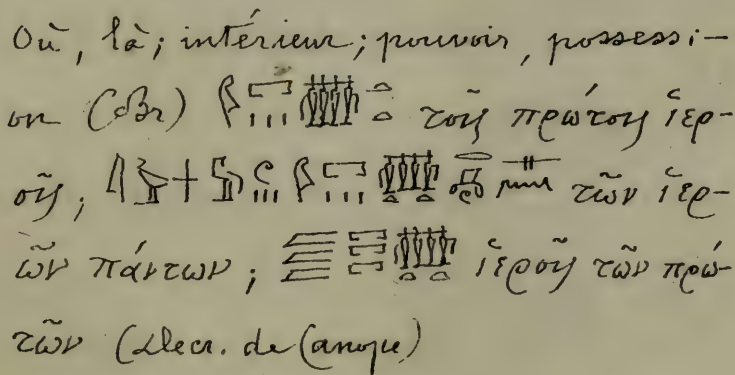 Où, là; intérieur; pouvoir, possessi-
on (Br) τοῖς πρώτοις ἱερ-
οῖς; τῶν ἱερ-
ῶν πάντων; ἱεροῖς τῶν πρώ-
τῶν (Decr. de Canope)